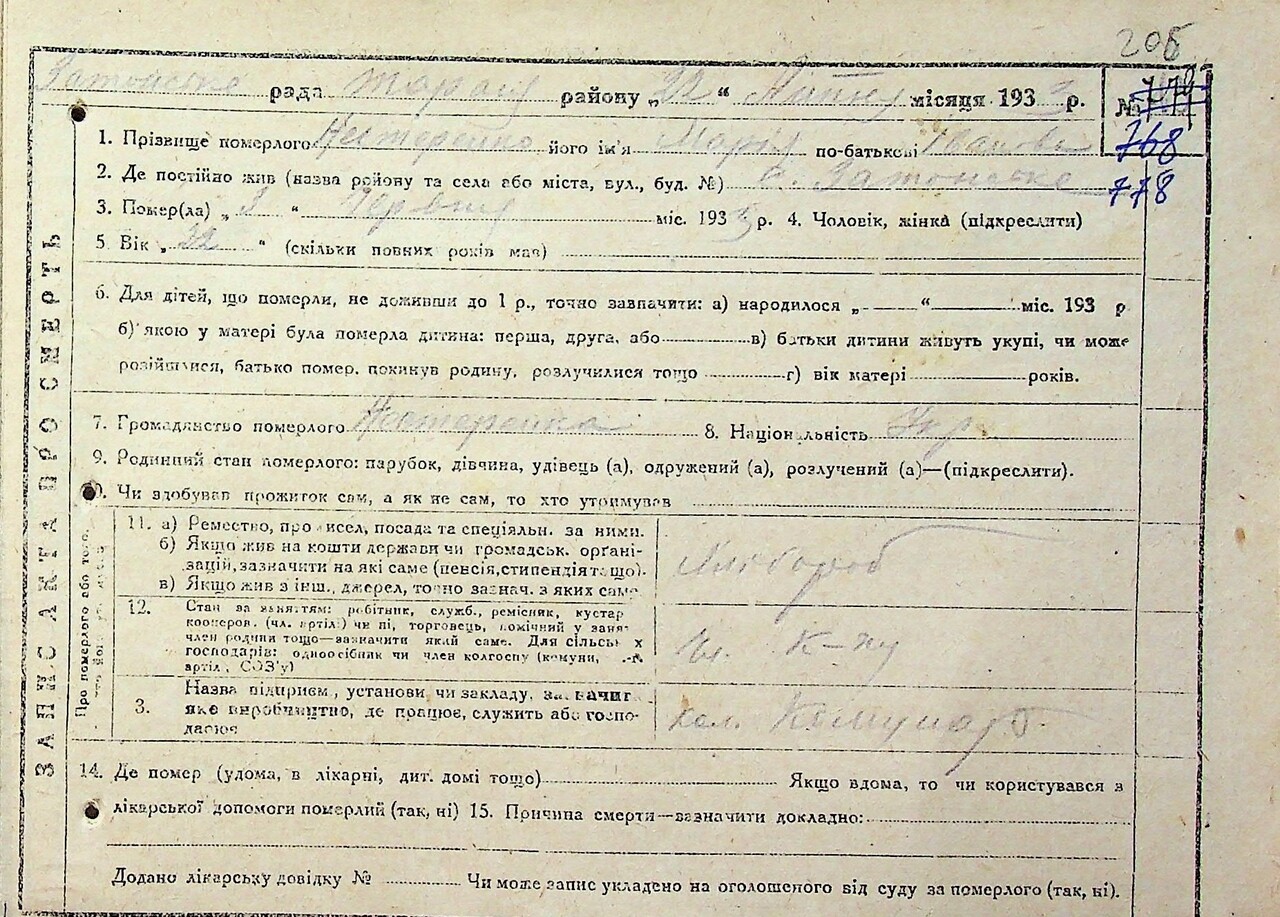 206
Затонська рада район району „22“ Липня місяця 1933 р.
№ 768
778
1. Прізвище померлого Нестеренко його ім'я Марія по-батькові Іванов
2. Де постійно жив (назва району та села або міста, вул., буд. №) с. Затонське
3. Помер(ла) „3“ Червня міс. 1933 р. 4. Чоловік, жінка (підкреслити)
5. Вік „32“ (скільки повних років мав)
6. Для дітей, що померли, не доживши до 1 р., точно зазначити: а) народилося „ “ міс. 193 р
б) якою у матері була померла дитина: перша, друга, або в) батьки дитини живуть укупі, чи може
розійшлися, батько помер, покинув родину, розлучилися тощо г) вік матері років.
7. Громадянство померлого Нестеренка 8. Національність Укр
9. Родинний стан померлого: парубок, дівчина, удівець (а), одружений (а), розлучений (а)—(підкреслити).
Чи здобував прожиток сам, а як не сам, то хто утримував
11. а) Ремество, промисел, посада та спеціяльн. за ними.
б) Якщо жив на кошти держави чи громадськ. орґані-
зацій, зазначити на які саме (пенсія, стипендія тощо).
в) Якщо жив з інш. джерел, точно зазнач. з яких саме
Хлібороб
12. Стан за заняттям: робітник, служб., ремісник, кустар
кооперов. (чл. артілі) чи ні, торговець, помічний у заня-
член родини тощо—зазначити який саме. Для сільськ х
господарів: одноосібник чи член колгоспу (комуни,
артіл., СОЗ'у)
Чл. к-пу
3. Назва підприєм., установи чи закладу, зазначит
яке виробництво, де працює, служить або госпо-
дарює
кол. Комунар
14. Де помер (удома, в лікарні, дит. домі тощо) Якщо вдома, то чи користувався з
лікарської допомоги померлий (так, ні) 15. Причина смерти—зазначити докладно:
Додано лікарську довідку № Чи може запис укладено на оголошеного від суду за померлого (так, ні).
ЗАПИС АКТА ПРО СМЕРТЬ
Про померлого або того,